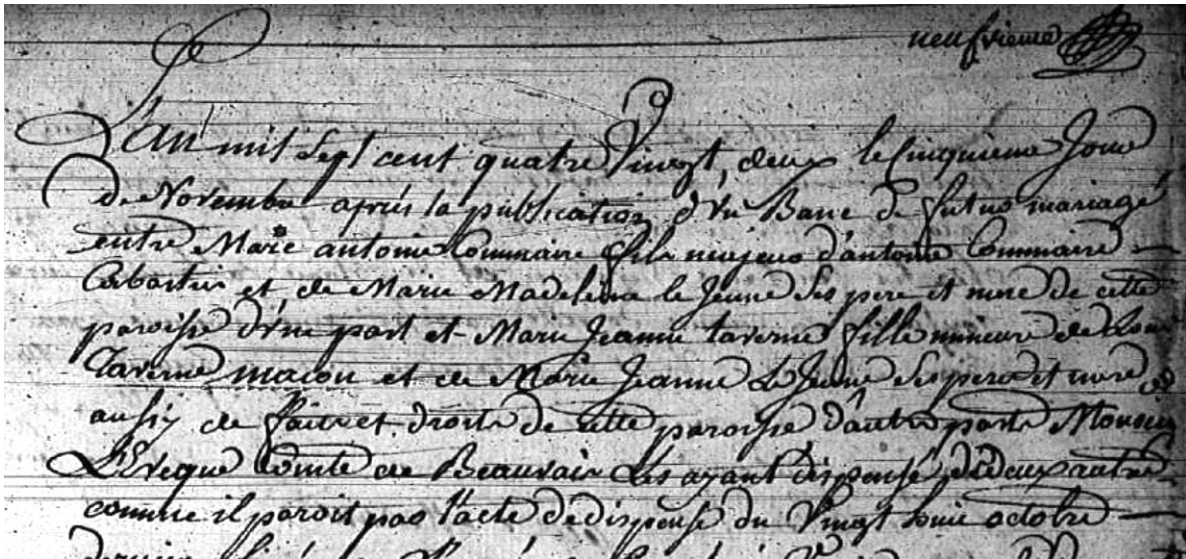 neufvieme
L'an mil sept cent quatre Vingt, deux le Cinquieme Jour
de Novembre après la publication d'vn Banc de futur mariage
entre Marc antoine Commaire fils majeur d'antoine Commaire
et de Marie Madeleine le Jeune Ses pere et mere de cette
paroisse d'une part et Marie Jeanne taverne fille mineure de Louis
Taverne macon et de Marie Jeanne Le Jeune Ses pere et mere
aussy de fait et droite de cette paroisse d'autre part Monseig
L'Eveque Comte de Beauvais Les ayant dispensé de deux autres
comme il paroit par l'acte de dispense du Vingt octobre
dernier